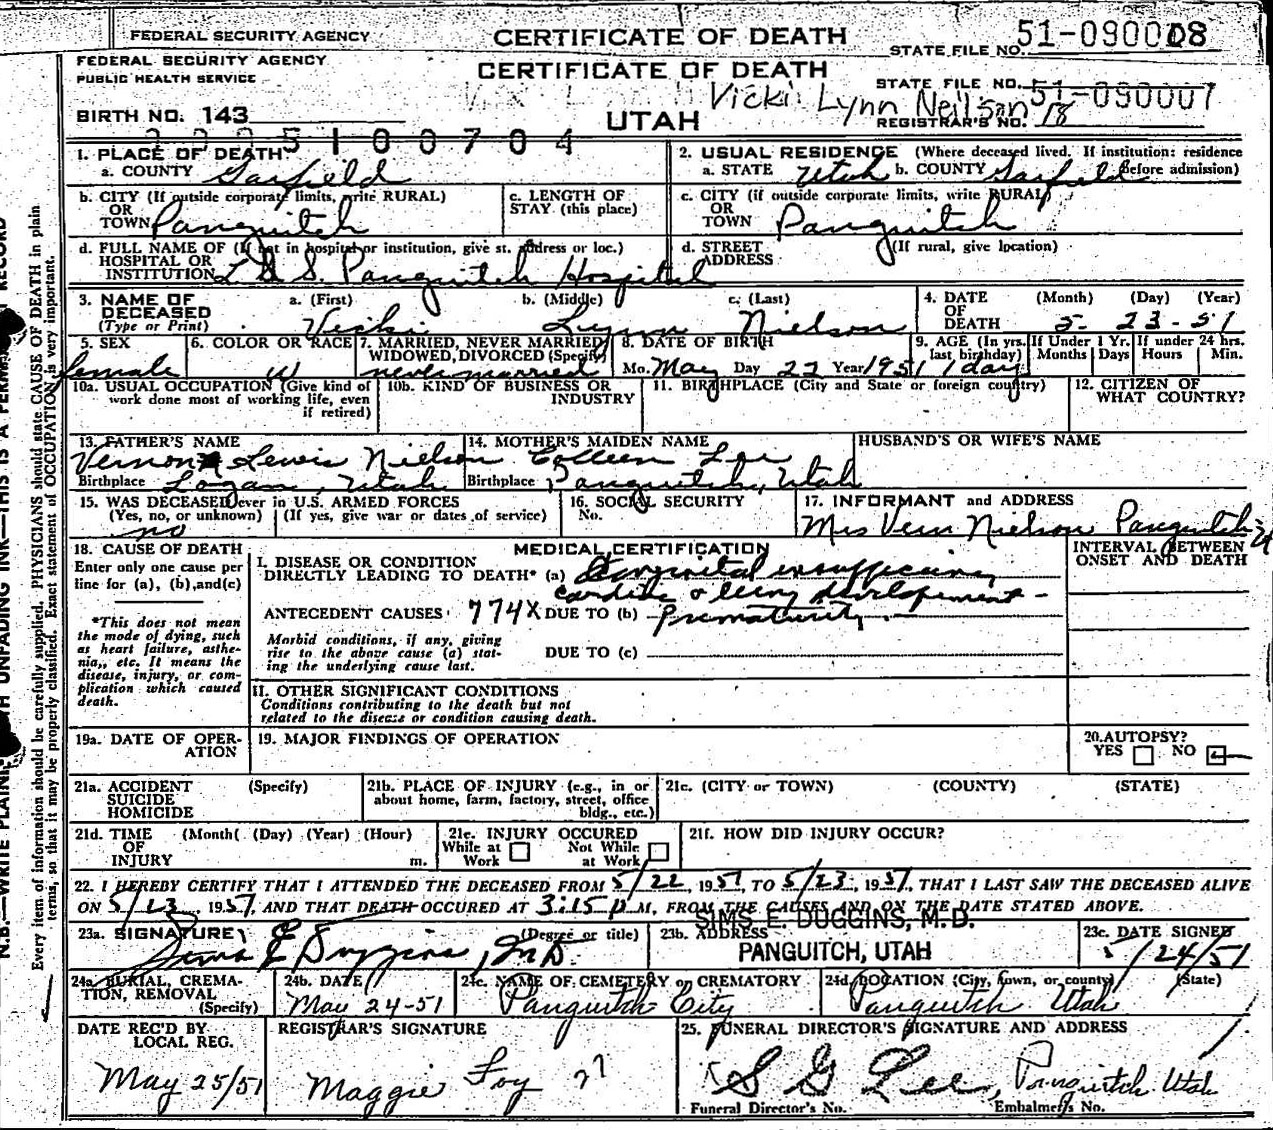 FEDERAL SECURITY AGENCY CERTIFICATE OF DEATH STATE FILE NO. 51-090008
FEDERAL SECURITY AGENCY
PUBLIC HEALTH SERVICE CERTIFICATE OF DEATH STATE FILE NO. 51-090007
Vicki Lynn Neilson
BIRTH NO. 143 UTAH REGISTRAR'S NO. 18
5100704
1. PLACE OF DEATH
a. COUNTY Garfield
2. USUAL RESIDENCE (Where deceased lived. If institution: residence before admission)
a. STATE Utah b. COUNTY Garfield
b. CITY (If outside corporate limits, write RURAL)
OR
TOWN Panguitch
c. LENGTH OF
STAY (this place)
c. CITY (if outside corporate limits, write RURAL)
OR
TOWN Panguitch
d. FULL NAME OF (If not in hospital or institution, give st. address or loc.)
HOSPITAL OR
INSTITUTION L.D.S. Panguitch Hospital
d. STREET (If rural, give location)
ADDRESS
3. NAME OF a. (First) b. (Middle) c. (Last)
DECEASED
(Type or Print) Vicki Lynn Nielson
4. DATE (Month) (Day) (Year)
OF
DEATH 5-23-51
5. SEX
female
6. COLOR OR RACE
W
7. MARRIED, NEVER MARRIED
WIDOWED, DIVORCED (Specify)
never married
8. DATE OF BIRTH
Mo. May Day 22 Year 1951
9. AGE (In yrs. last birthday) If Under 1 Yr. If under 24 hrs.
Months Days Hours Min.
1 day
10a. USUAL OCCUPATION (Give kind of
work done most of working life, even
if retired)
10b. KIND OF BUSINESS OR
INDUSTRY
11. BIRTHPLACE (City and State or foreign country)
12. CITIZEN OF
WHAT COUNTRY?
13. FATHER'S NAME
Vernon Lewis Nielson
Birthplace Logan, Utah
14. MOTHER'S MAIDEN NAME
Colleen Lee
Birthplace Panguitch, Utah
HUSBAND'S OR WIFE'S NAME
15. WAS DECEASED ever in U.S. ARMED FORCES
(Yes, no, or unknown) (If yes, give war or dates of service)
no
16. SOCIAL SECURITY
No.
17. INFORMANT and ADDRESS
Mrs Vern Nielson Panguitch
18. CAUSE OF DEATH
Enter only one cause per
line for (a), (b), and (c)
*This does not mean
the mode of dying, such
as heart failure, asthe-
nia, etc. It means the
disease, injury, or com-
plication which caused
death.
MEDICAL CERTIFICATION
I. DISEASE OR CONDITION
DIRECTLY LEADING TO DEATH* (a) Congenital insufficiency
cardiac & lung developement -
ANTECEDENT CAUSES 774X DUE TO (b) Prematurity.
Morbid conditions, if any, giving
rise to the above cause (a) stat-
ing the underlying cause last.
DUE TO (c)
II. OTHER SIGNIFICANT CONDITIONS
Conditions contributing to the death but not
related to the disease or condition causing death.
INTERVAL BETWEEN
ONSET AND DEATH
19a. DATE OF OPER-
ATION
19. MAJOR FINDINGS OF OPERATION
20. AUTOPSY?
YES NO
21a. ACCIDENT (Specify)
SUICIDE
HOMICIDE
21b. PLACE OF INJURY (e.g., in or
about home, farm, factory, street, office
bldg., etc.)
21c. (CITY or TOWN) (COUNTY) (STATE)
21d. TIME (Month( (Day) (Year) (Hour)
OF
INJURY m.
21e. INJURY OCCURED
While at Not While
Work at Work
21f. HOW DID INJURY OCCUR?
22. I HEREBY CERTIFY THAT I ATTENDED THE DECEASED FROM 5/22, 1951, TO 5/23, 1951, THAT I LAST SAW THE DECEASED ALIVE
ON 5/23 1951, AND THAT DEATH OCCURED AT 3:15 P M, FROM THE CAUSES AND ON THE DATE STATED ABOVE.
23a. SIGNATURE (Degree or title)
Sims E Duggins, M.D.
23b. ADDRESS
SIMS E. DUGGINS, M.D.
PANGUITCH, UTAH
23c. DATE SIGNED
5/24/51
24a. BURIAL, CREMA-
TION, REMOVAL
(Specify)
24b. DATE
May 24-51
24c. NAME OF CEMETERY or CREMATORY
Panguitch City
24d. LOCATION (City, town, or county) (State)
Panguitch Utah
DATE REC'D BY
LOCAL REG.
May 25/51
REGISTRAR'S SIGNATURE
Maggie Foy
25. FUNERAL DIRECTOR'S SIGNATURE AND ADDRESS
S G Lee, Panguitch Utah
Funeral Director's No. Embalmer's No.
N.B.—WRITE PLAINLY WITH UNFADING INK—THIS IS A PERMANENT RECORD
Every item of information should be carefully supplied. PHYSICIANS should state CAUSE OF DEATH in plain
terms, so that it may be properly classified. Exact statement of OCCUPATION is very important.